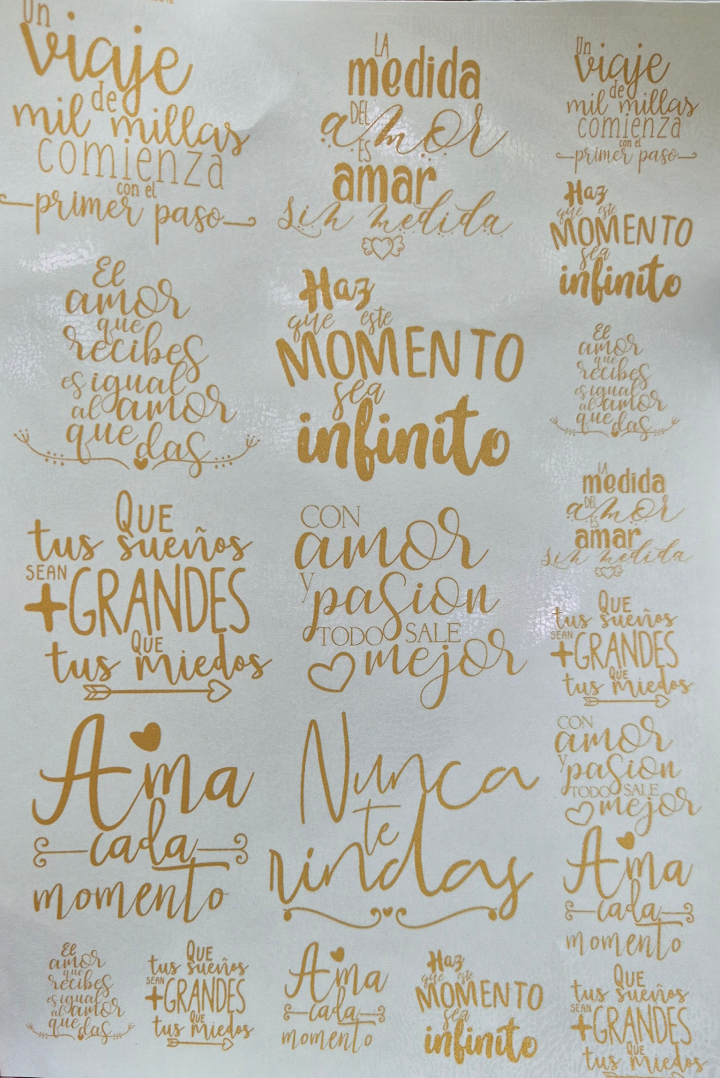 Un
viaje
de
mil millas
comienza
con el
primer paso
LA
medida
DEL
amor
ES
amar
sin medida
Un
viaje
de
mil millas
comienza
con el
primer paso
Haz
que este
MOMENTO
sea
infinito
El
amor
que
recibes
es igual
al amor
que das
Haz
que este
MOMENTO
sea
infinito
El
amor
que
recibes
es igual
al amor
que das
LA
medida
DEL
amor
ES
amar
sin medida
QUE
tus sueños
SEAN
+GRANDES
QUE
tus miedos
CON
amor
y
pasion
TODO SALE
mejor
QUE
tus sueños
SEAN
+GRANDES
QUE
tus miedos
CON
amor
y
pasion
TODO SALE
mejor
Ama
cada
momento
Nunca
te
rindas
Ama
cada
momento
El
amor
que
recibes
es igual
al amor
que das
QUE
tus sueños
SEAN
+GRANDES
QUE
tus miedos
Ama
cada
momento
Haz
que este
MOMENTO
sea
infinito
QUE
tus sueños
SEAN
+GRANDES
QUE
tus miedos